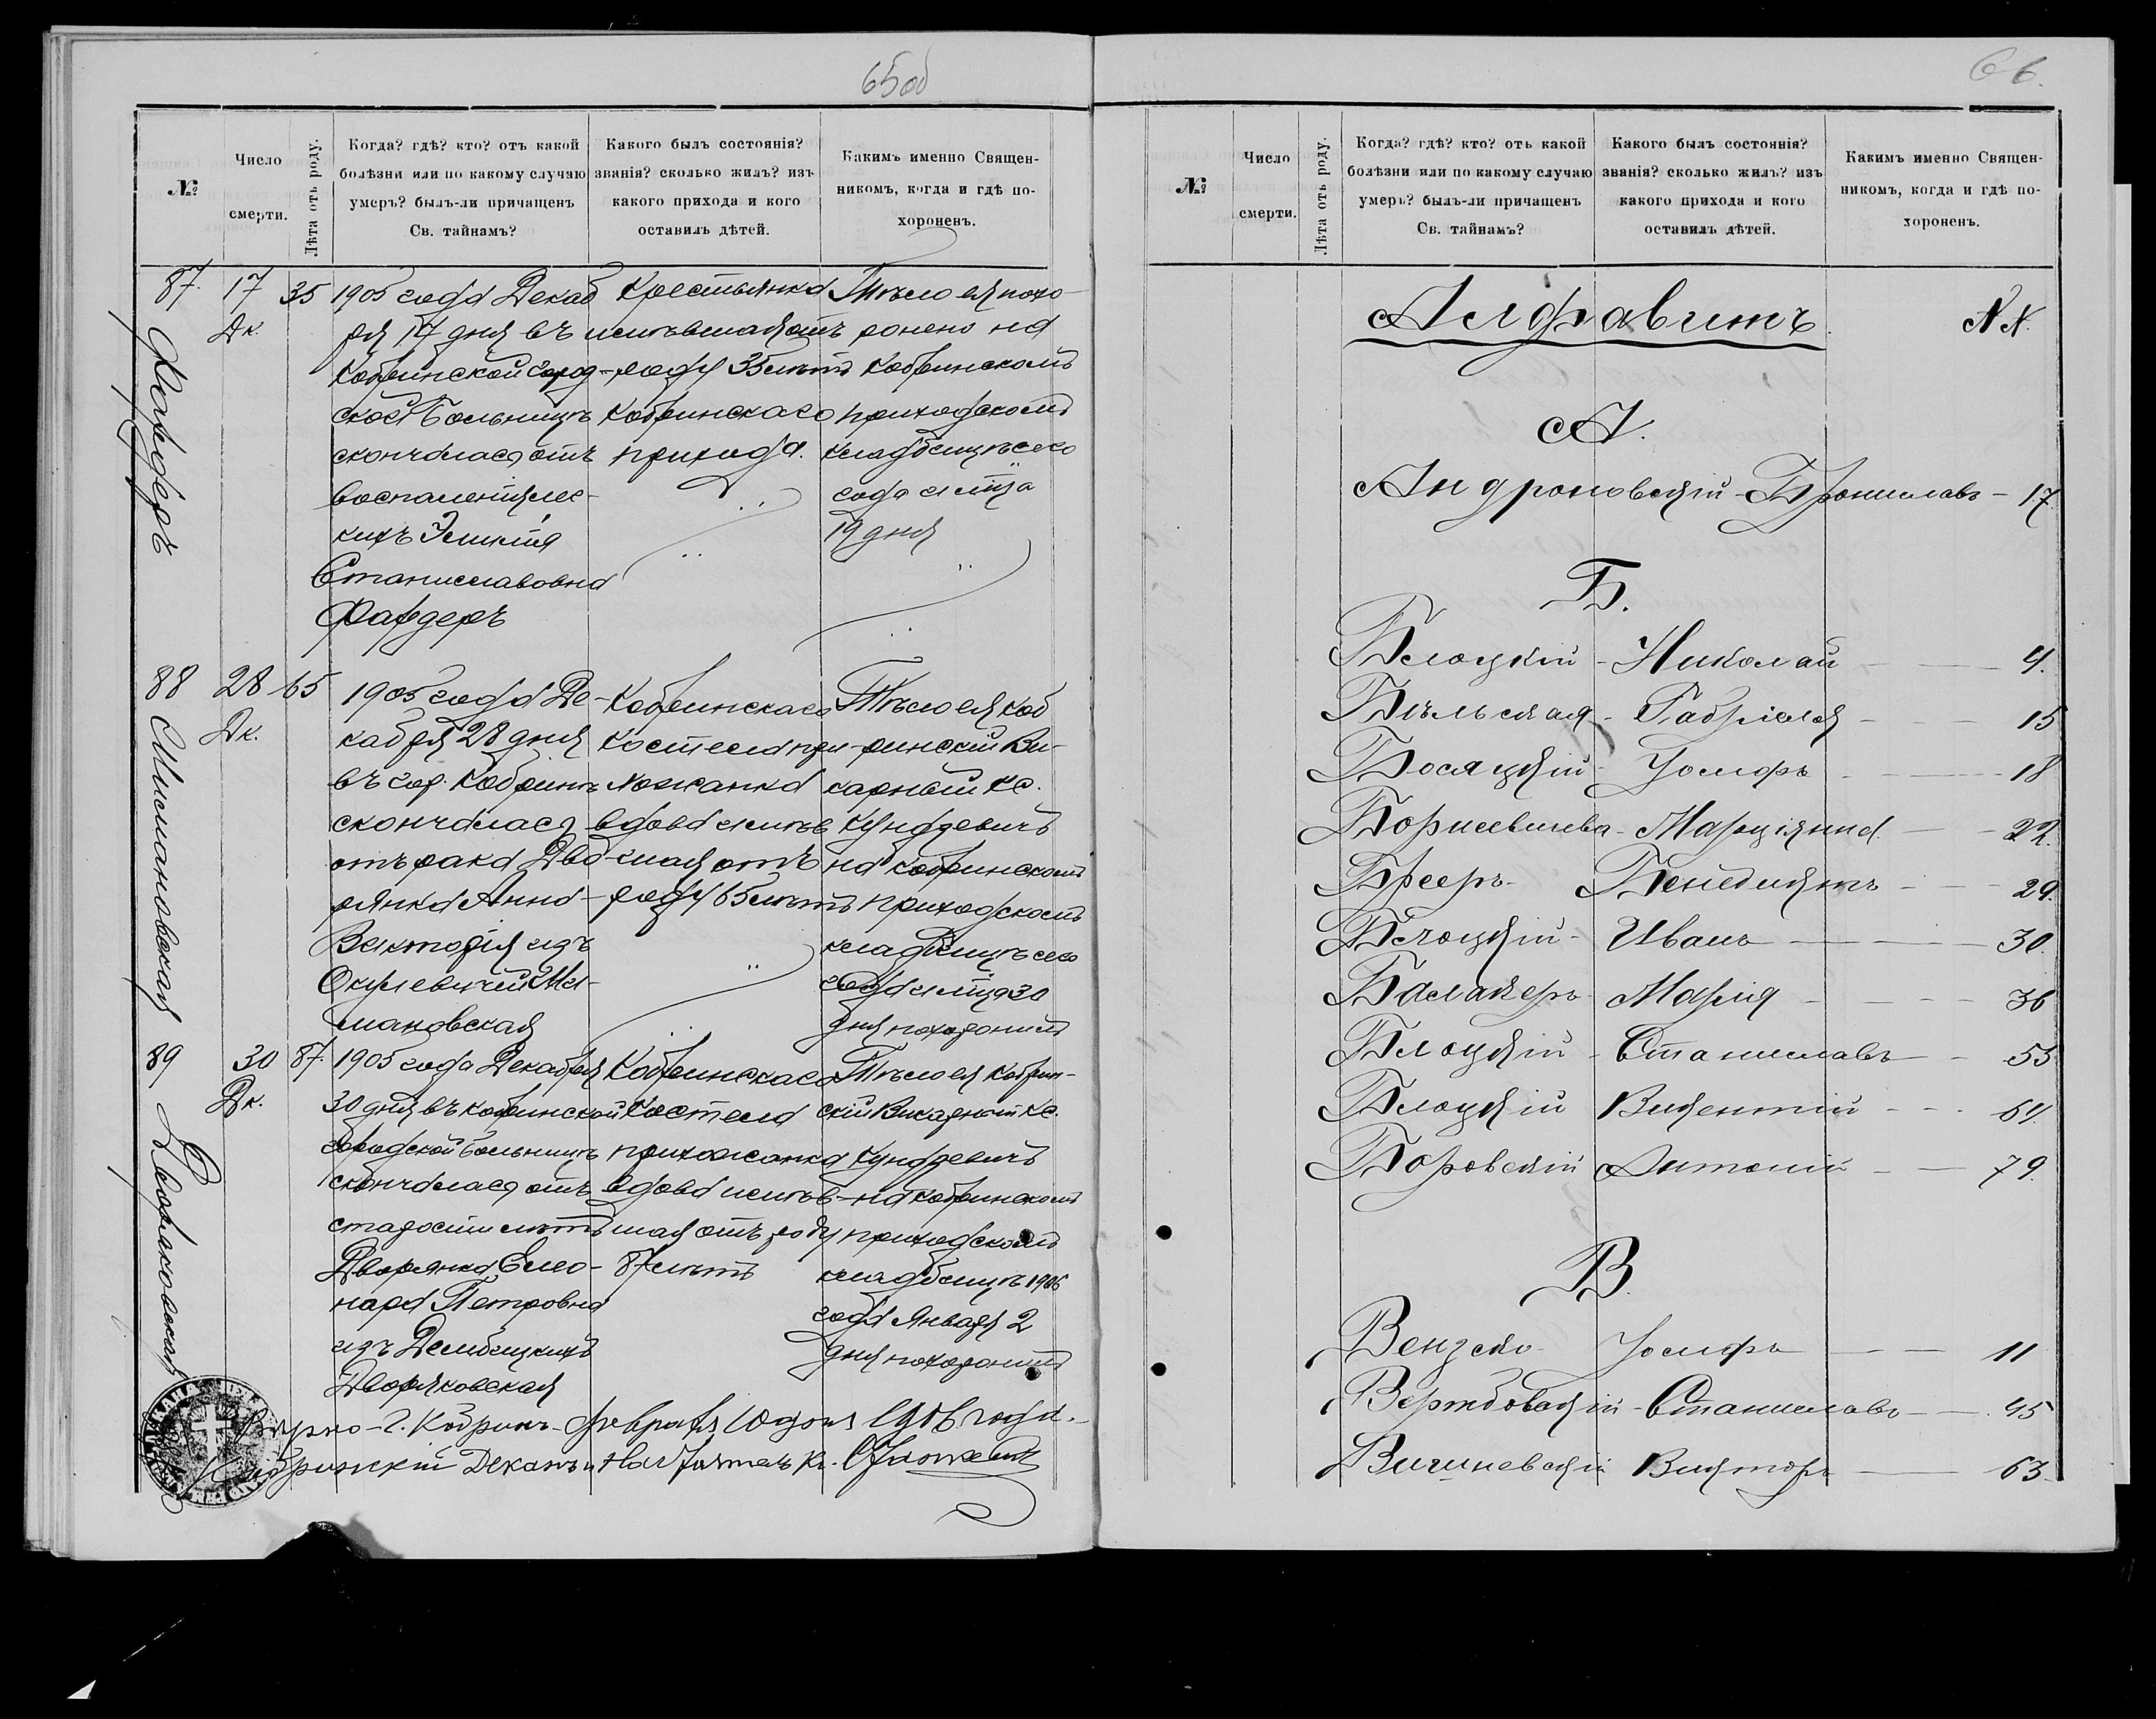 65об
№
Число
смерти.
Лѣта отъ роду.
Когда? гдѣ? кто? отъ какой
болѣзни или по какому случаю
умеръ? былъ-ли причащенъ
Св. тайнамъ?
Какого былъ состоянія?
званія? сколько жилъ? изъ
какого прихода и кого
оставилъ дѣтей.
Какимъ именно Священ-
никомъ, когда и гдѣ по-
хороненъ.
87.
17
Дк.
35
1905 года Декаб
ря 17 дня въ
Кобринской город-
ской Больницѣ
скончалась отъ
воспаленія лег-
кихъ Эмилія
Станиславовна
Фардеръ
Крестьянка
имѣвшая отъ
роду 35 лѣтъ
Кобринскаго
прихода.
Тѣло ея похо-
ронено на
Кобринскомъ
приходскомъ
кладбищѣ сего
года и м-ца
19 дня
88
28
Дк.
65
1905 года Де-
кабря 28 дня
въ гор. Кобринѣ
скончалась
отъ рака Дво-
рянка Анна-
Виктория изъ
Окулевичей
мановская
Кобринскаго
Костела при-
хожанка
вдова имѣв-
шая отъ
роду 65 лѣтъ
Тѣло ея Коб
ринскій Ви-
карный Кс.
Кундзевичъ
на Кобринскомъ
приходскомъ
кладбищѣ сего
года и м-ца 30
дня похоронилъ
89
30
Дк.
87.
1905 года Декабря
30 дня въ Кобринской
городской больницѣ
скончалась отъ
старости лѣтъ
Дворянка Элео-
нара Петровна
изъ Дембицкихъ
Дворяковская
Кобринскаго
Костела
прихожанка
вдова имѣв-
шая отъ роду
87 лѣтъ
Тѣло ея Кобрин-
скій Викарный Кс.
Кундзевичъ
на Кобринскомъ
приходскомъ
кладбищѣ 1906
года Января 2
дня похоронилъ
Фардеръ
Дворяковская
Г. Кобринъ Февраля 10 дня 1906 года.
Кобринскій Деканъ и Настоятель Кс.
66.
№
Число
смерти.
Лѣта отъ роду.
Когда? гдѣ? кто? отъ какой
болѣзни или по какому случаю
умеръ? былъ-ли причащенъ
Св. тайнамъ?
Какого былъ состоянія?
званія? сколько жилъ? изъ
какого прихода и кого
оставилъ дѣтей.
Какимъ именно Священ-
никомъ, когда и гдѣ по-
хороненъ.
Алфавитъ. NN.
А.
Андроновскій - Брониславъ - 17
Б.
Блоцкій - Николай - 4.
Бѣльская - Габріеля - 15
Босяцкій - Іосифъ - 18
Борисевичева - Марціянна - 22.
Брееръ - Бенедиктъ - 29.
Блоцкій - Иванъ - 30.
Балакеръ - Марія - 36
Блоцкій - Станиславъ - 55
Блоцкій Викентій - 64.
Боровскій Антоній - 79.
В.
Вензско - Іосифъ - 11
Вержбовскій - Станиславъ - 45
Вишневскій Викторъ - 63